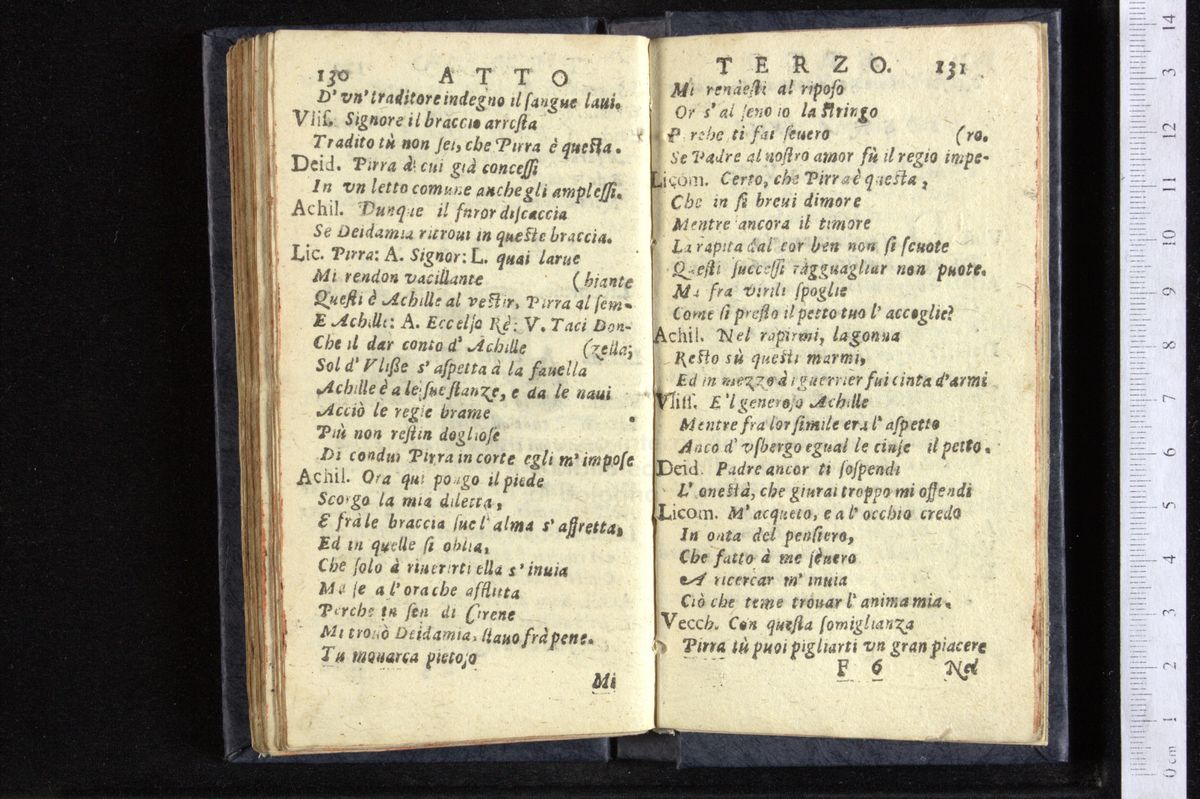 130 ATTO
D' vn' traditore indegno il ſangue laui.
Vliſ. Signore il braccio arreſta
Tradito tù non ſei, che Pirra è queſta.
Deid. Pirra à cui già conceſſi
In vn letto comune anche gli ampleſſi.
Achil. Dunque il furor diſcaccia
Se Deidamia ritroui in queſte braccia.
Lic. Pirra: A. Signor: L. quai larue
Mi rendon vacillante (biante
Queſti è Achille al veſtir, Pirra al ſem-
E Achille: A. Eccelſo Rè: V. Taci Don-
Che il dar conto d' Achille (zella;
Sol d' Vliſſe s' aſpetta à la fauella
Achille è a le ſue ſtanze, e da le naui
Acciò le regie brame
Più non reſtin doglioſe
Di condur Pirra in corte egli m' impoſe
Achil. Ora qui pongo il piede
Scorgo la mia diletta,
E frà le braccia ſue l' alma s' affretta,
Ed in quelle ſi oblia,
Che ſolo à riuerirti ella s' inuia
Ma ſe a l' ora che afflitta
Perche in ſen di Cirene
Mi trouò Deidamia, ſtauo frà pene.
Tu monarca pietoſo
Mi
TERZO. 131
Mi rendeſti al ripoſo
Or s' al ſeno io la ſtringo
Perche ti fai ſeuero (ro.
Se Padre al noſtro amor fù il regio impe-
Licom. Certo, che Pirra è queſta,
Che in ſi breui dimore
Mentre ancora il timore
La rapita dal cor ben non ſi ſcuote
Queſti ſucceſſi ragguagliar non puote.
Ma fra virili ſpoglie
Come ſi preſto il petto tuo l' accoglie?
Achil. Nel rapirmi, la gonna
Reſto sù queſti marmi,
Ed in mezzo à i guerrier fui cinta d'armi
Vliſſ. E 'l generoſo Achille
Mentre fra lor ſimile era l' aſpetto
Anco d' vſbergo egual le cinſe il petto.
Deid. Padre ancor ti ſoſpendi
L' oneſtà, che giurai troppo mi offendi
Licom. M' acqueto, e a l' occhio credo
In onta del penſiero,
Che fatto à me ſeuero
A ricercar m' inuia
Ciò che teme trouar l' anima mia.
Vecch. Con queſta ſomiglianza
Pirra tù puoi pigliarti vn gran piacere
F 6 Nel
0 cm 1 2 3 4 5 6 7 8 9 10 11 12 3 14